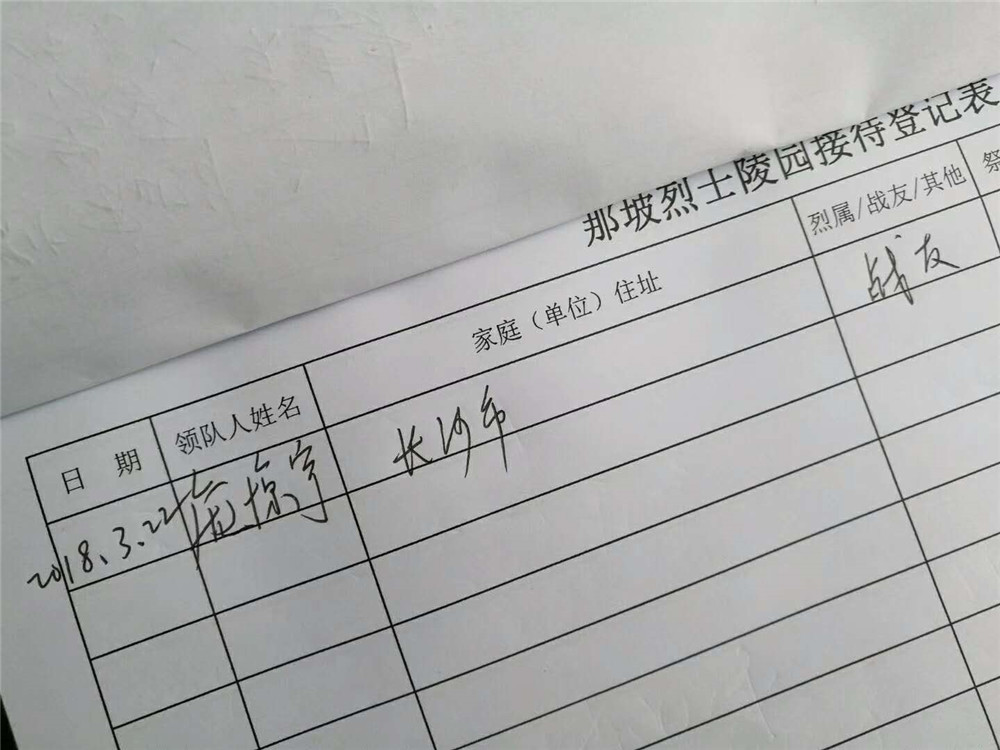 那坡烈士陵园接待登记表
日 期 领队人姓名 家庭（单位）住址 烈属/战友/其他 祭
2018.3.22 长沙市 战友